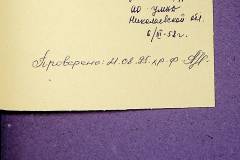 по
Николаевской обл.
6/VI-52 г.
Проверено: 21.08.95. хр. ф.